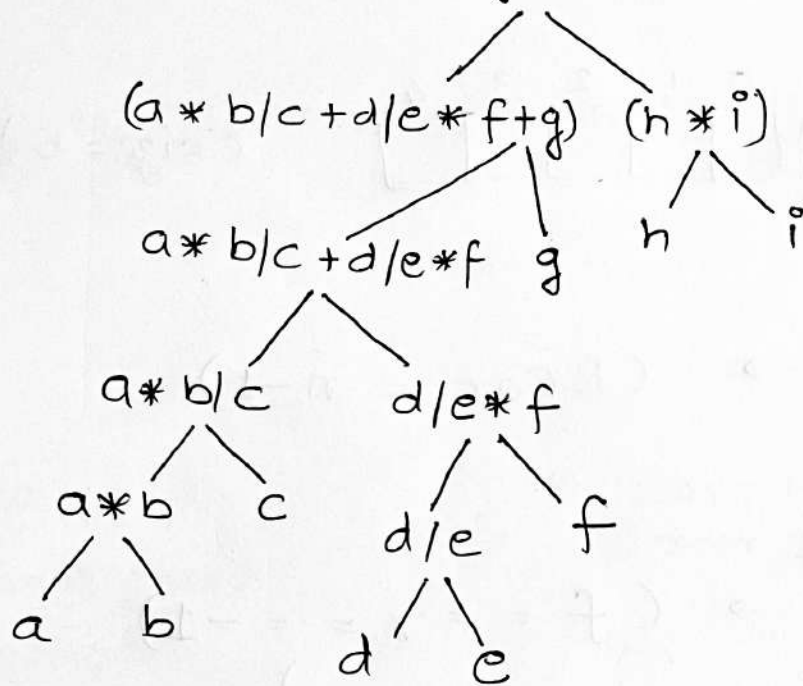 (a * b/c + d/e * f+g) (h * i)
a * b/c + d/e*f g h i
a* b/c d/e* f
a*b c d/e f
a b d e